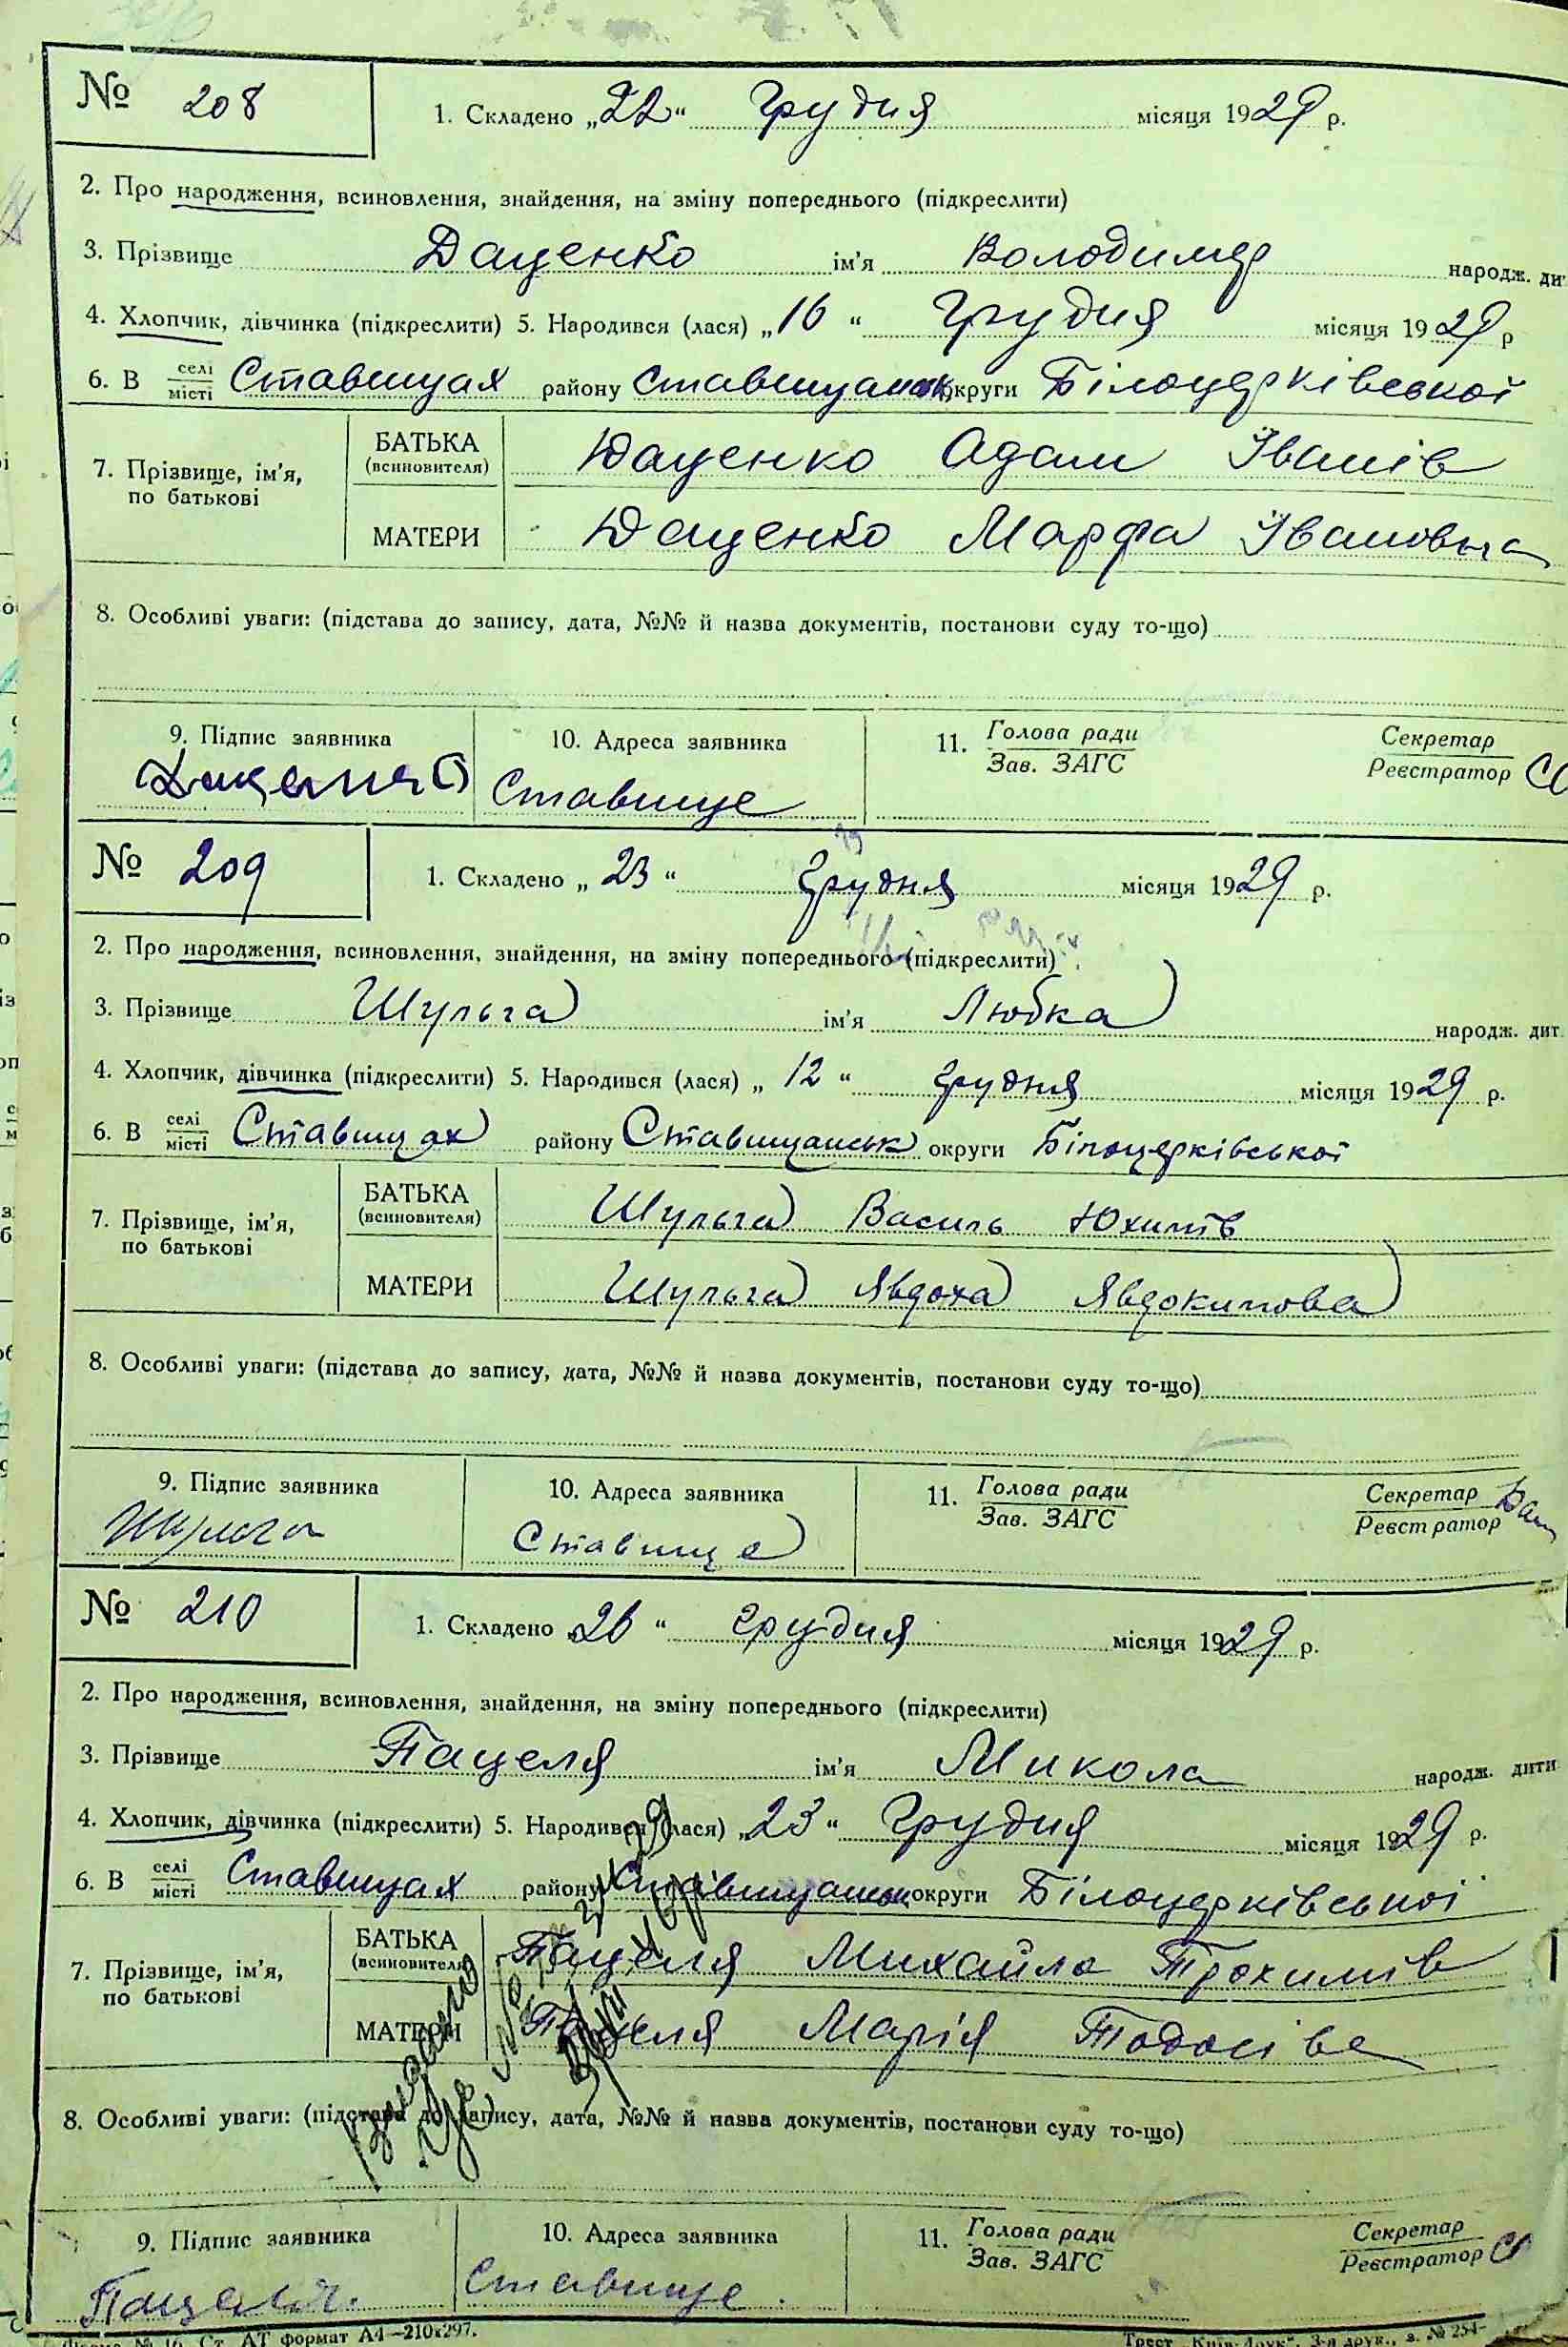 № 208 1. Складено „22“ Грудня місяця 1929 р.
2. Про народження, всиновлення, знайдення, на зміну попереднього (підкреслити)
3. Прізвище Даценко ім'я Володимер народж. ди
4. Хлопчик, дівчинка (підкреслити) 5. Народився (лася) „16“ Грудня місяця 1929 р
6. В селі місті Ставищах району Ставищанськ округи Білоцерківської
7. Прізвище, ім'я, по батькові
БАТЬКА (всиновителя) Даценко Адам Іванів
МАТЕРИ Даценко Марфа Івановна
8. Особливі уваги: (підстава до запису, дата, №№ й назва документів, постанови суду то-що)
9. Підпис заявника 10. Адреса заявника 11. Голова ради Зав. ЗАГС Секретар Реєстратор
Даценко Ставище
№ 209 1. Складено „23“ грудня місяця 1929 р.
2. Про народження, всиновлення, знайдення, на зміну попереднього (підкреслити)
3. Прізвище Шульга ім'я Любка народж. дит
4. Хлопчик, дівчинка (підкреслити) 5. Народився (лася) „12“ грудня місяця 1929 р.
6. В селі місті Ставищах району Ставищанськ округи Білоцерківської
7. Прізвище, ім'я, по батькові
БАТЬКА (всиновителя) Шульга Василь Юхимів
МАТЕРИ Шульга Явдоха Явдокимова
8. Особливі уваги: (підстава до запису, дата, №№ й назва документів, постанови суду то-що)
9. Підпис заявника 10. Адреса заявника 11. Голова ради Зав. ЗАГС Секретар Реєстратор
Шульга Ставище
№ 210 1. Складено „26“ грудня місяця 1929 р.
2. Про народження, всиновлення, знайдення, на зміну попереднього (підкреслити)
3. Прізвище Пацеля ім'я Микола народж. дити
4. Хлопчик, дівчинка (підкреслити) 5. Народився (лася) „23“ Грудня місяця 1929 р.
6. В селі місті Ставищах району Ставищанськ округи Білоцерківської
7. Прізвище, ім'я, по батькові
БАТЬКА (всиновителя) Пацеля Михайло Трохимів
МАТЕРИ Пацеля Марія Тодосівна
8. Особливі уваги: (підстава до запису, дата, №№ й назва документів, постанови суду то-що)
9. Підпис заявника 10. Адреса заявника 11. Голова ради Зав. ЗАГС Секретар Реєстратор
Пацеля Ставище
Форма № 16. Ст. АТ формат А4—210х297. Трест „Київ-Друк“, 3-я друк., з. № 254-